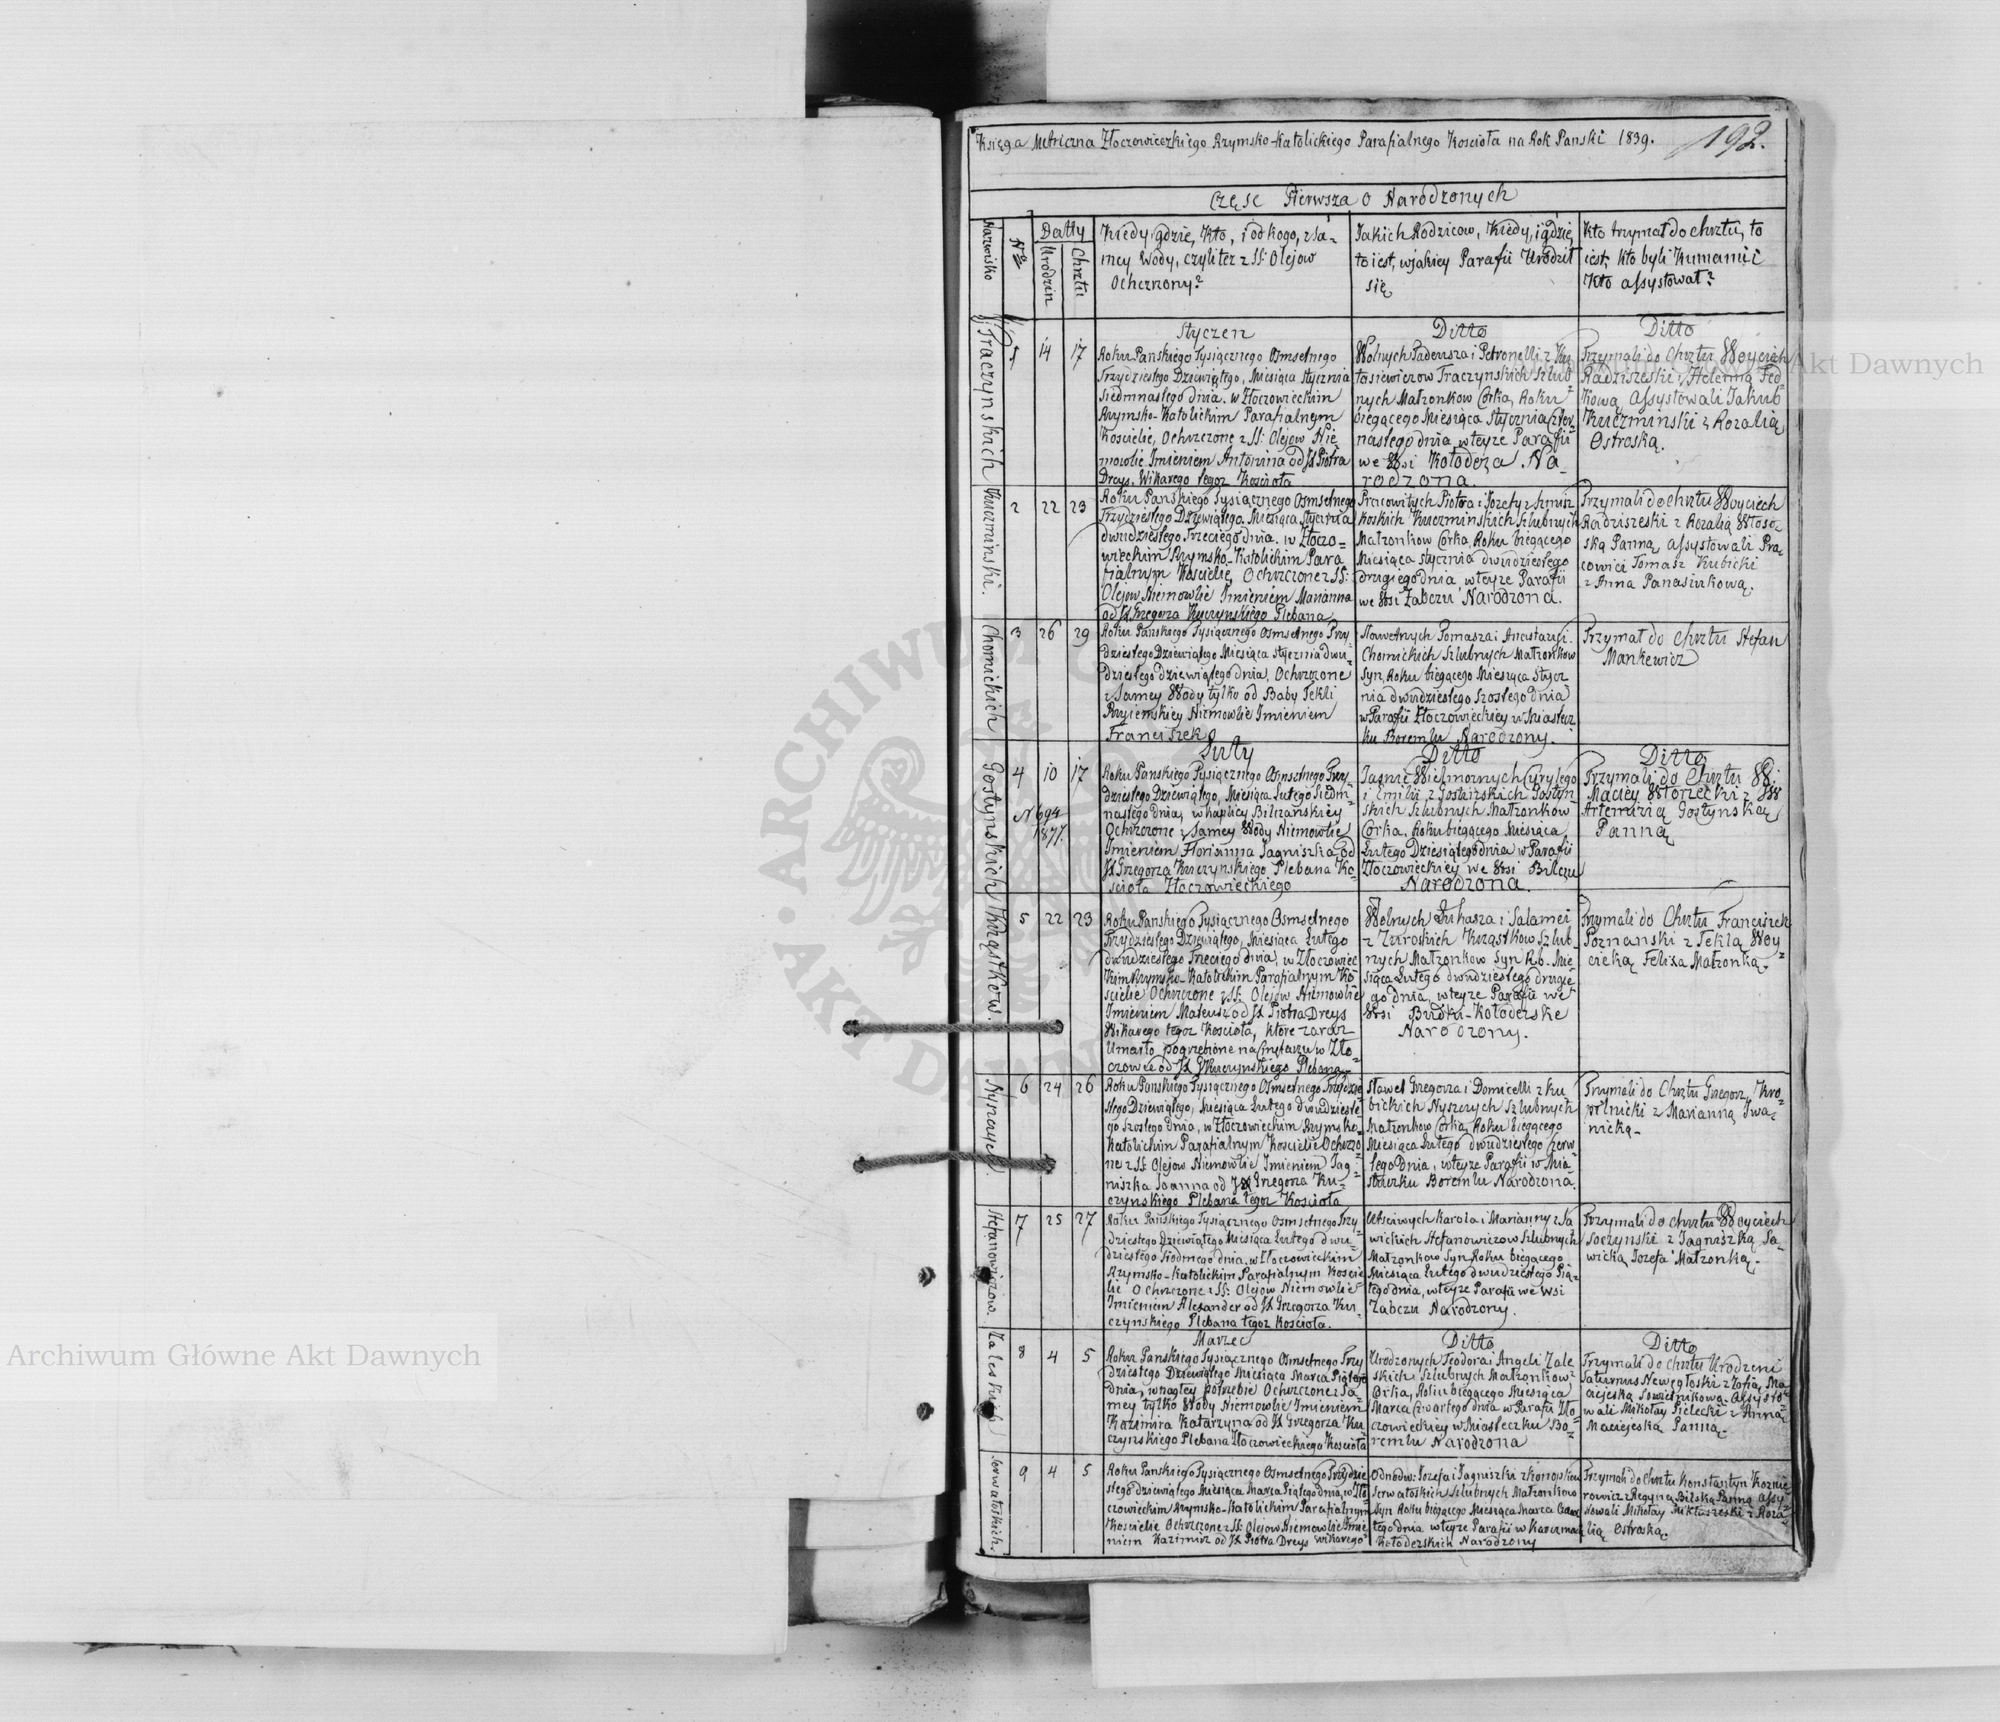 Księga Metriczna Złoczowieckiego Rzymsko-Katolickiego Parafialnego Kościoła na Rok Panski 1839.
192.
Częsc Pierwsza o Narodzonych
Nazwisko
No
Datty
Urodzin
Chrztu
Kiedy, gdzie, Kto, i od kogo, z Sa-
mey Wody, czyli tez z SS: Olejow
Ochrznony?
Jakich Rodzicow, Kiedy, i gdzie,
to iest, w jakiey Parafii Urodził
się
Kto trzymał do chrztu, to
iest, Kto byli Kumami i
Kto assystował?
Traczynskich
1
14
17
Styczen
Roku Panskiego Tysiącznego Osmsetnego
Trzydziestego Dziewiątego, Miesiąca Stycznia
Siedmnastego dnia. w Złoczowieckim
Rzymsko-Katolickim Parafialnym
Kosciele, Ochrzczone z SS: Olejow Nie-
mowle Imieniem Antonina od JX Piotra
Dreys. Wikarego tegoz Kosciola
Ditto
Wolnych Tadeusza i Petronelli z
Traczynskich Szlub-
nych Małzonkow Corka, Roku
biegącego Miesiąca Stycznia Czter-
nastego dnia, w teyze Parafii
we Wsi Kołodeza. Na-
rodzona.
Ditto
Trzymali do Chrztu Woyciech
Radziszeski z Helenną Fed-
kową Assystowali Jakub
Kuczminski z Rozalią
Ostroską.
Kuczminski.
2
22
23
Roku Panskiego Tysiącznego Osmsetnego
Trzydziestego Dziewiątego. Miesiąca Stycznia
dwudziestego Trzeciego dnia. w Złoczo-
wieckim Rzymsko-Katolickim Para-
fialnym Kosciele, Ochrzczone z SS:
Olejow Niemowle Imieniem Marianna
od JX Grzegorza Kuczynskiego Plebana
Pracowitych Piotra i Jozefy z
Kuczminskich Szlubnych
Małzonkow Corka, Roku biegącego
Miesiąca Stycznia dwudziestego
drugiego dnia, w teyze Parafii
we Wsi Zabczu Narodzona.
Trzymali do chrztu Woyciech
Radziszeski z Rozalią Włoso-
ską Panną, assystowali Pra-
cowici Tomasz Kubicki
z Anna Panasiukową.
Chomickich
3
26
29
Roku Panskiego Tysiącznego Osmsetnego Trzy-
dziestego Dziewiątego Miesiąca Stycznia dwu-
dziestego dziewiątego dnia, Ochrzczone
z Samey Wody tylko od Baby Tekli
Niemowle Imieniem
Franciszek
Sławetnych Tomasza i Anastazyi
Chomickich Szlubnych Małzonkow
Syn, Roku biegącego Miesiąca Stycz-
nia dwudziestego Szostego dnia
w Parafii Złoczowieckiey w Miastecz-
ku Boremlu Narodzony.
Trzymał do Chrztu Stefan
Mankewicz
Gostynskich
4
10
17
N 694
1877.
Luty
Roku Panskiego Tysiącznego Osmsetnego Trzy-
dziestego Dziewiątego, Miesiąca Lutego Siedm-
nastego dnia, w kaplicy Bilczanskiey
Ochrzczone z Samey Wody Niemowle
Imieniem Florianna Jagniszka od
JX Grzegorza Kuczynskiego Plebana Ko-
scioła Złoczowieckiego
Ditto
Jasnie Wielmoznych Cyrylego
i Emilii z Gostyn-
skich Szlubnych Małzonkow
Corka, Roku biegącego Miesiąca
Lutego Dziesiątego dnia w Parafii
Złoczowieckiey we Wsi Bilczu
Narodzona.
Ditto
Trzymali do Chrztu W:
Maciey Worzecki z JW
Artemizią Gostynską
Panną
Krząstkow.
5
22
23
Roku Panskiego Tysiącznego Osmsetnego
Trzydziestego Dziewiątego, Miesiąca Lutego
dwudziestego Trzeciego dnia, w Złoczowiec-
kim Rzymsko-Katolickim Parafialnym Ko-
sciele Ochrzczone z SS: Olejow Niemowle
Imieniem Mateusz od JX Piotra Dreys
Wikarego tegoz Kosciola, ktore zaraz
Umarło pogrzebione na Cmętarzu w Zło-
czowce od JX Kuczynskiego Plebana
Wolnych Łukasza i Salomei
z Zuroskich Krząstkow Szlub-
nych Małzonkow Syn R.b. Mie-
siąca Lutego dwudziestego drugie-
go dnia, w teyze Parafii we
Wsi Budki-Kołodezske
Narodzony.
Trzymali do Chrztu Franciszek
Poznanski z Teklą Woy-
cicką Felixa Małzonką.
Nyszaych.
6
24
26
Roku Panskiego Tysiącznego Osmsetnego Trzydzie-
stego Dziewiątego, Miesiąca Lutego dwudzieste-
go Szostego dnia, w Złoczowieckim Rzymsko-
Katolickim Parafialnym Kosciele Ochrzczo-
ne z SS: Olejow Niemowle Imieniem Jag-
niszka Joanna od JX Grzegorza Ku-
czynskiego Plebana tegoz Kosciola
Sławet Grzegorza i Domicelli z Ku-
bickich Nyszych Szlubnych
Małzonkow Corka, Roku biegącego
Miesiąca Lutego dwudziestego Czwar-
tego Dnia, w teyze Parafii w Mia-
steczku Boremlu Narodzona.
Trzymali do Chrztu Grzegorz Kro-
pelnicki z Marianną Iwa-
nicką
Stefanowiczow.
7
25
27
Roku Panskiego Tysiącznego Osmsetnego Trzy-
dziestego Dziewiątego Miesiąca Lutego dwu-
dziestego Siodmego dnia, w Złoczowieckim
Rzymsko-Katolickim Parafialnym Koscie-
le Ochrzczone z SS: Olejow Niemowle
Imieniem Alexander od JX Grzegorza Ku-
czynskiego Plebana tegoz Kosciola.
Uczciwych Karola i Marianny z Sa-
wickich Stefanowiczow Szlubnych
Małzonkow Syn, Roku biegącego
Miesiąca Lutego dwudziestego Pią-
tego dnia, w teyze Parafii we Wsi
Zabczu Narodzony.
Trzymali do Chrztu Woyciech
Soczynski z Jagniszką Sa-
wicką Jozefa Małzonką.
Zaleskich
8
4
5
Marzec
Roku Panskiego Tysiącznego Osmsetnego Trzy-
dziestego Dziewiątego Miesiąca Marca Piątego
dnia, w nagłey potrzebie Ochrzczone z Sa-
mey tylko Wody Niemowle Imieniem
Kazimira Katarzyna od JX Grzegorza Ku-
czynskiego Plebana Złoczowieckiego Kosciola
Ditto
Urodzonych Teodora i Angeli Zale-
skich Szlubnych Małzonkow
Corka, Roku biegącego Miesiąca
Marca Czwartego dnia w Parafii Zło-
czowieckiey w Miasteczku Bo-
remlu Narodzona
Ditto
Trzymali do chrztu Urodzeni
Saturnus Newęgłoski z Zofią Ma-
ciejeską Sowietnikową. Assysto-
wali Mikołay Pielecki z Anną
Maciejeską Panną.
Serwatoskich.
9
4
5
Roku Panskiego Tysiącznego Osmsetnego Trzydzie-
stego dziewiątego Miesiąca Marca Piątego dnia, w Zło-
czowieckim Rzymsko-Katolickim Parafialnym
Kosciele Ochrzczone z SS: Olejow Niemowle Imie-
niem Kazimirz od JX Piotra Dreys wikarego
Odnodw: Jozefa i Jagniszki z
Serwatoskich Szlubnych Małzonkow
Syn Roku biegącego Miesiąca Marca Czwar-
tego dnia w teyze Parafii w Karczmach
Kołodezskich Narodzony
Trzymali do Chrztu Konstantyn Kaznie-
rowicz z Regyną Bilską Panną assy-
stowali Mikołay Mikłaszeski z Roza-
lią Ostroską.
Archiwum Główne Akt Dawnych
Archiwum Główne Akt Dawnych
ARCHIWUM GŁÓWNE AKT DAWNYCH